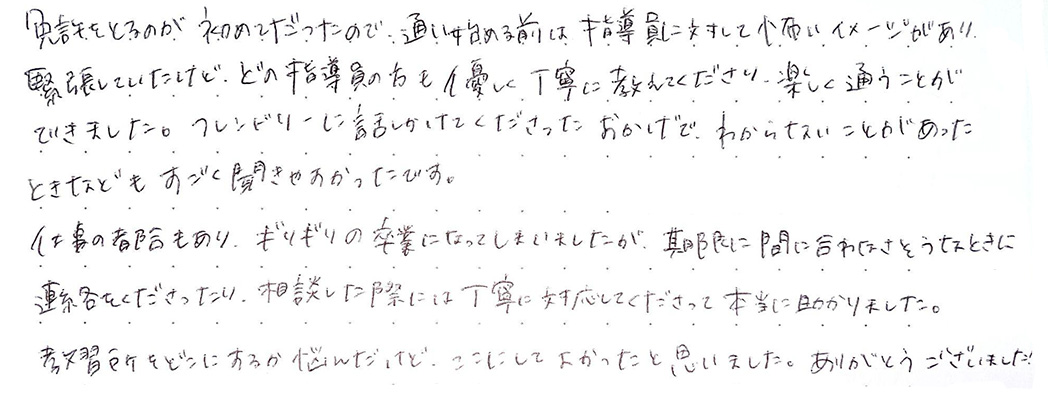 免許をとるのが初めてだったので、通い始める前は指導員に対して怖いイメージがあり、
緊張していたけど、どの指導員の方も優しく丁寧に教えてくださり、楽しく通うことが
できました。フレンドリーに話しかけてくださったおかげで、わからないことがあった
ときなどもすごく聞きやすかったです。
仕事の都合もあり、ギリギリの卒業になってしまいましたが、期限に間に合わなさそうなときに
連絡をくださったり、相談した際には丁寧に対応してくださって本当に助かりました。
教習所をどこにするか悩んだけど、ここにしてよかったと思いました。ありがとうございました!